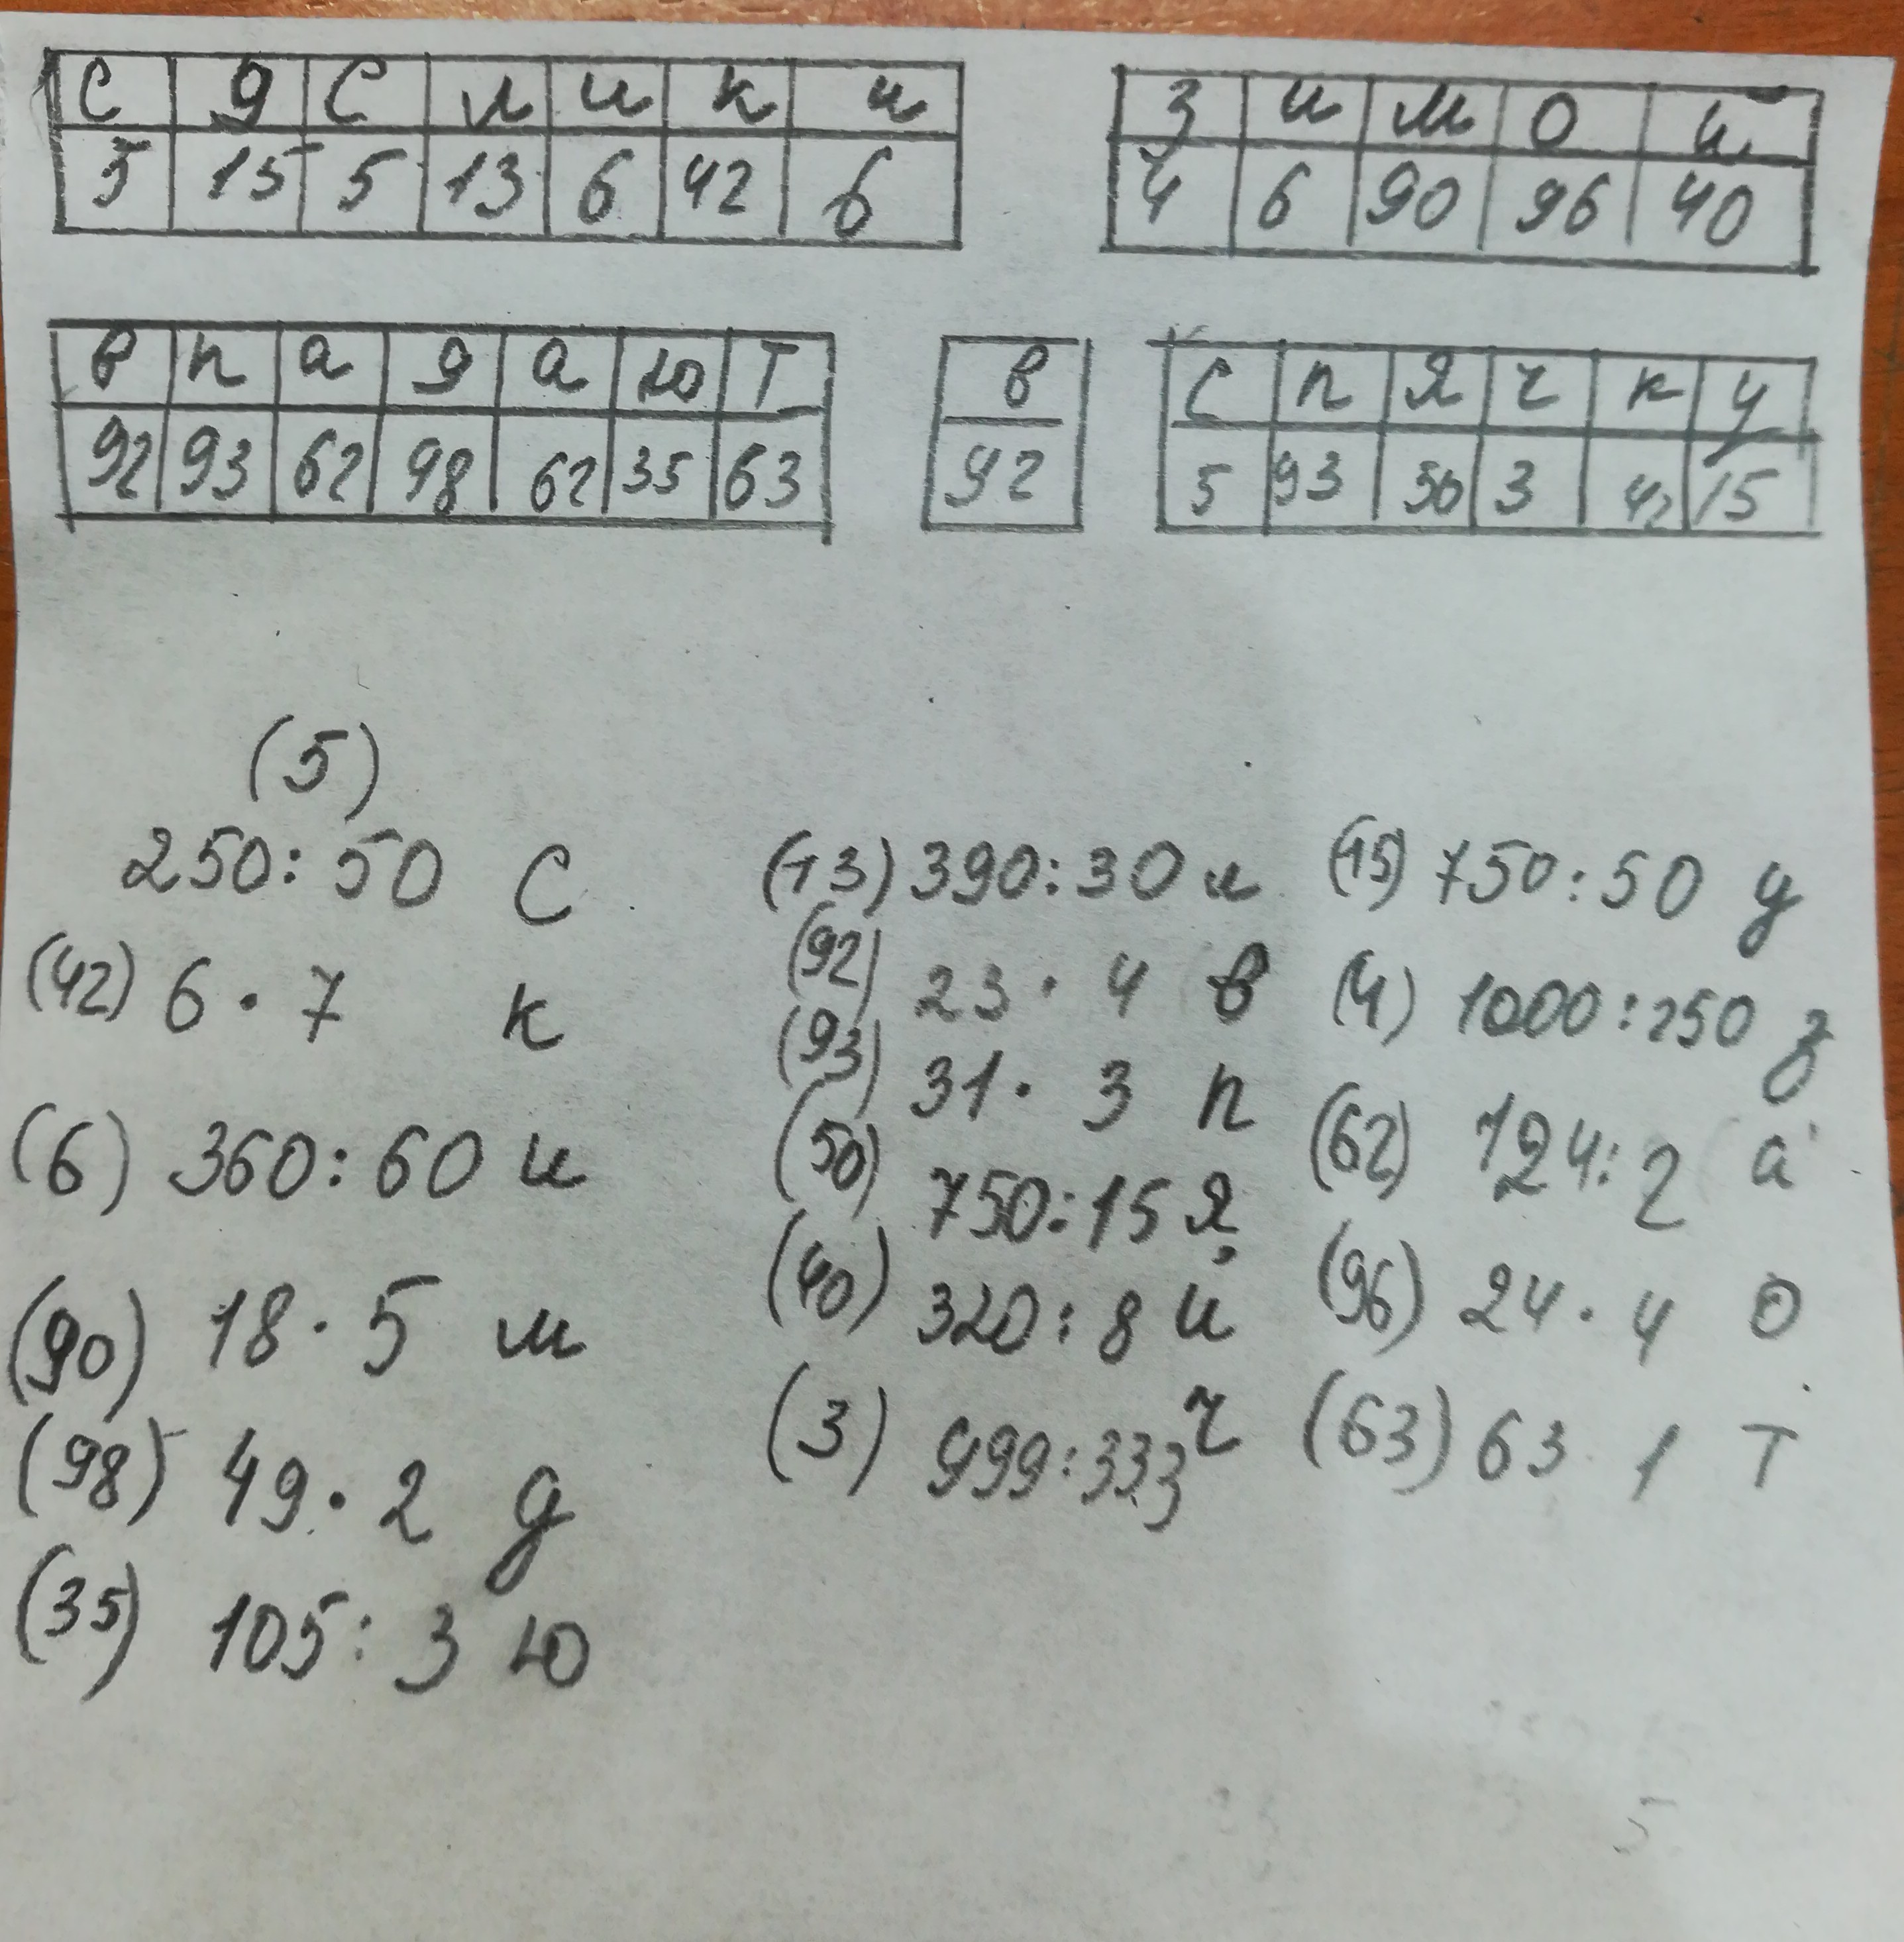 С У С л и к и З и м О й
5 15 5 13 6 42 6 4 6 90 96 40
В п а д а ю Т в С п Я ч к у
92 93 62 98 62 35 63 92 5 93 50 3 42 15
(5)
250:50 С (13) 390:30 л (15) 750:50 у
(42) 6·7 к (92) 23·4 в (4) 1000:250 з
(93) 31·3 п
(6) 360:60 и (50) 750:15 Я (62) 124:2 а
(90) 18·5 м (40) 320:8 й (96) 24·4 О
(98) 49·2 д (3) 999:333 ч (63) 63·1 Т
(35) 105:3 Ю
5